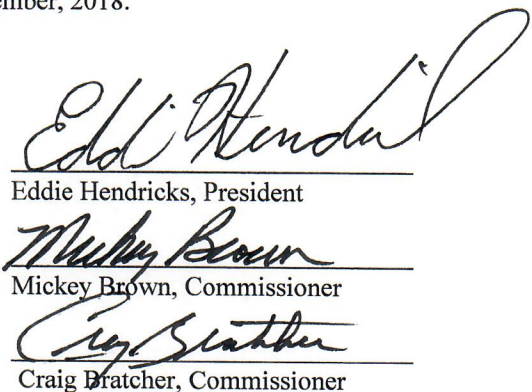 ember, 2018.
Eddie Hendricks
Eddie Hendricks, President
Mickey Brown
Mickey Brown, Commissioner
Craig Bratcher
Craig Bratcher, Commissioner